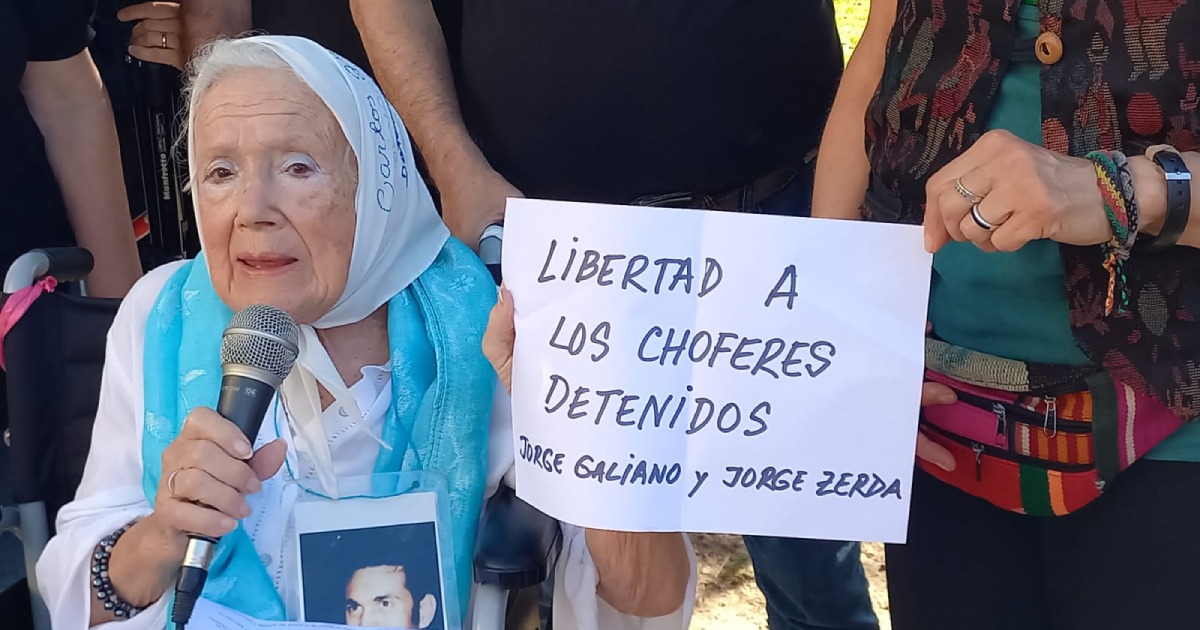 Carlos
Manfrotto
LIBERTAD A
LOS CHOFERES
DETENIDOS
JORGE GALIANO y JORGE ZERDA